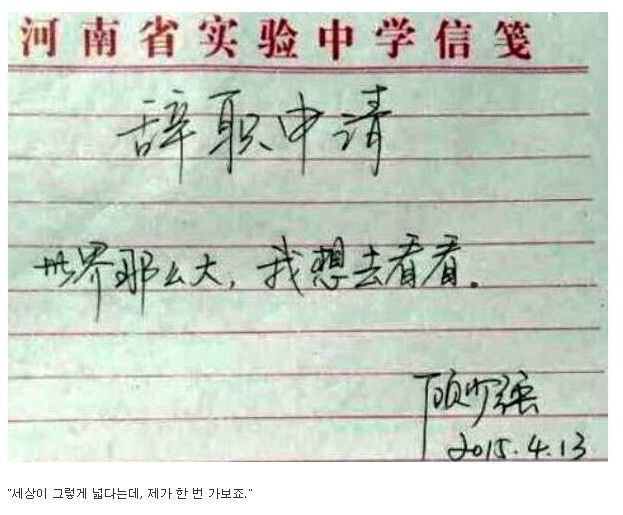 河南省实验中学信笺
辞职申请
世界那么大，我想去看看。
顾少强
2015.4.13
"세상이 그렇게 넓다는데, 제가 한 번 가보죠."